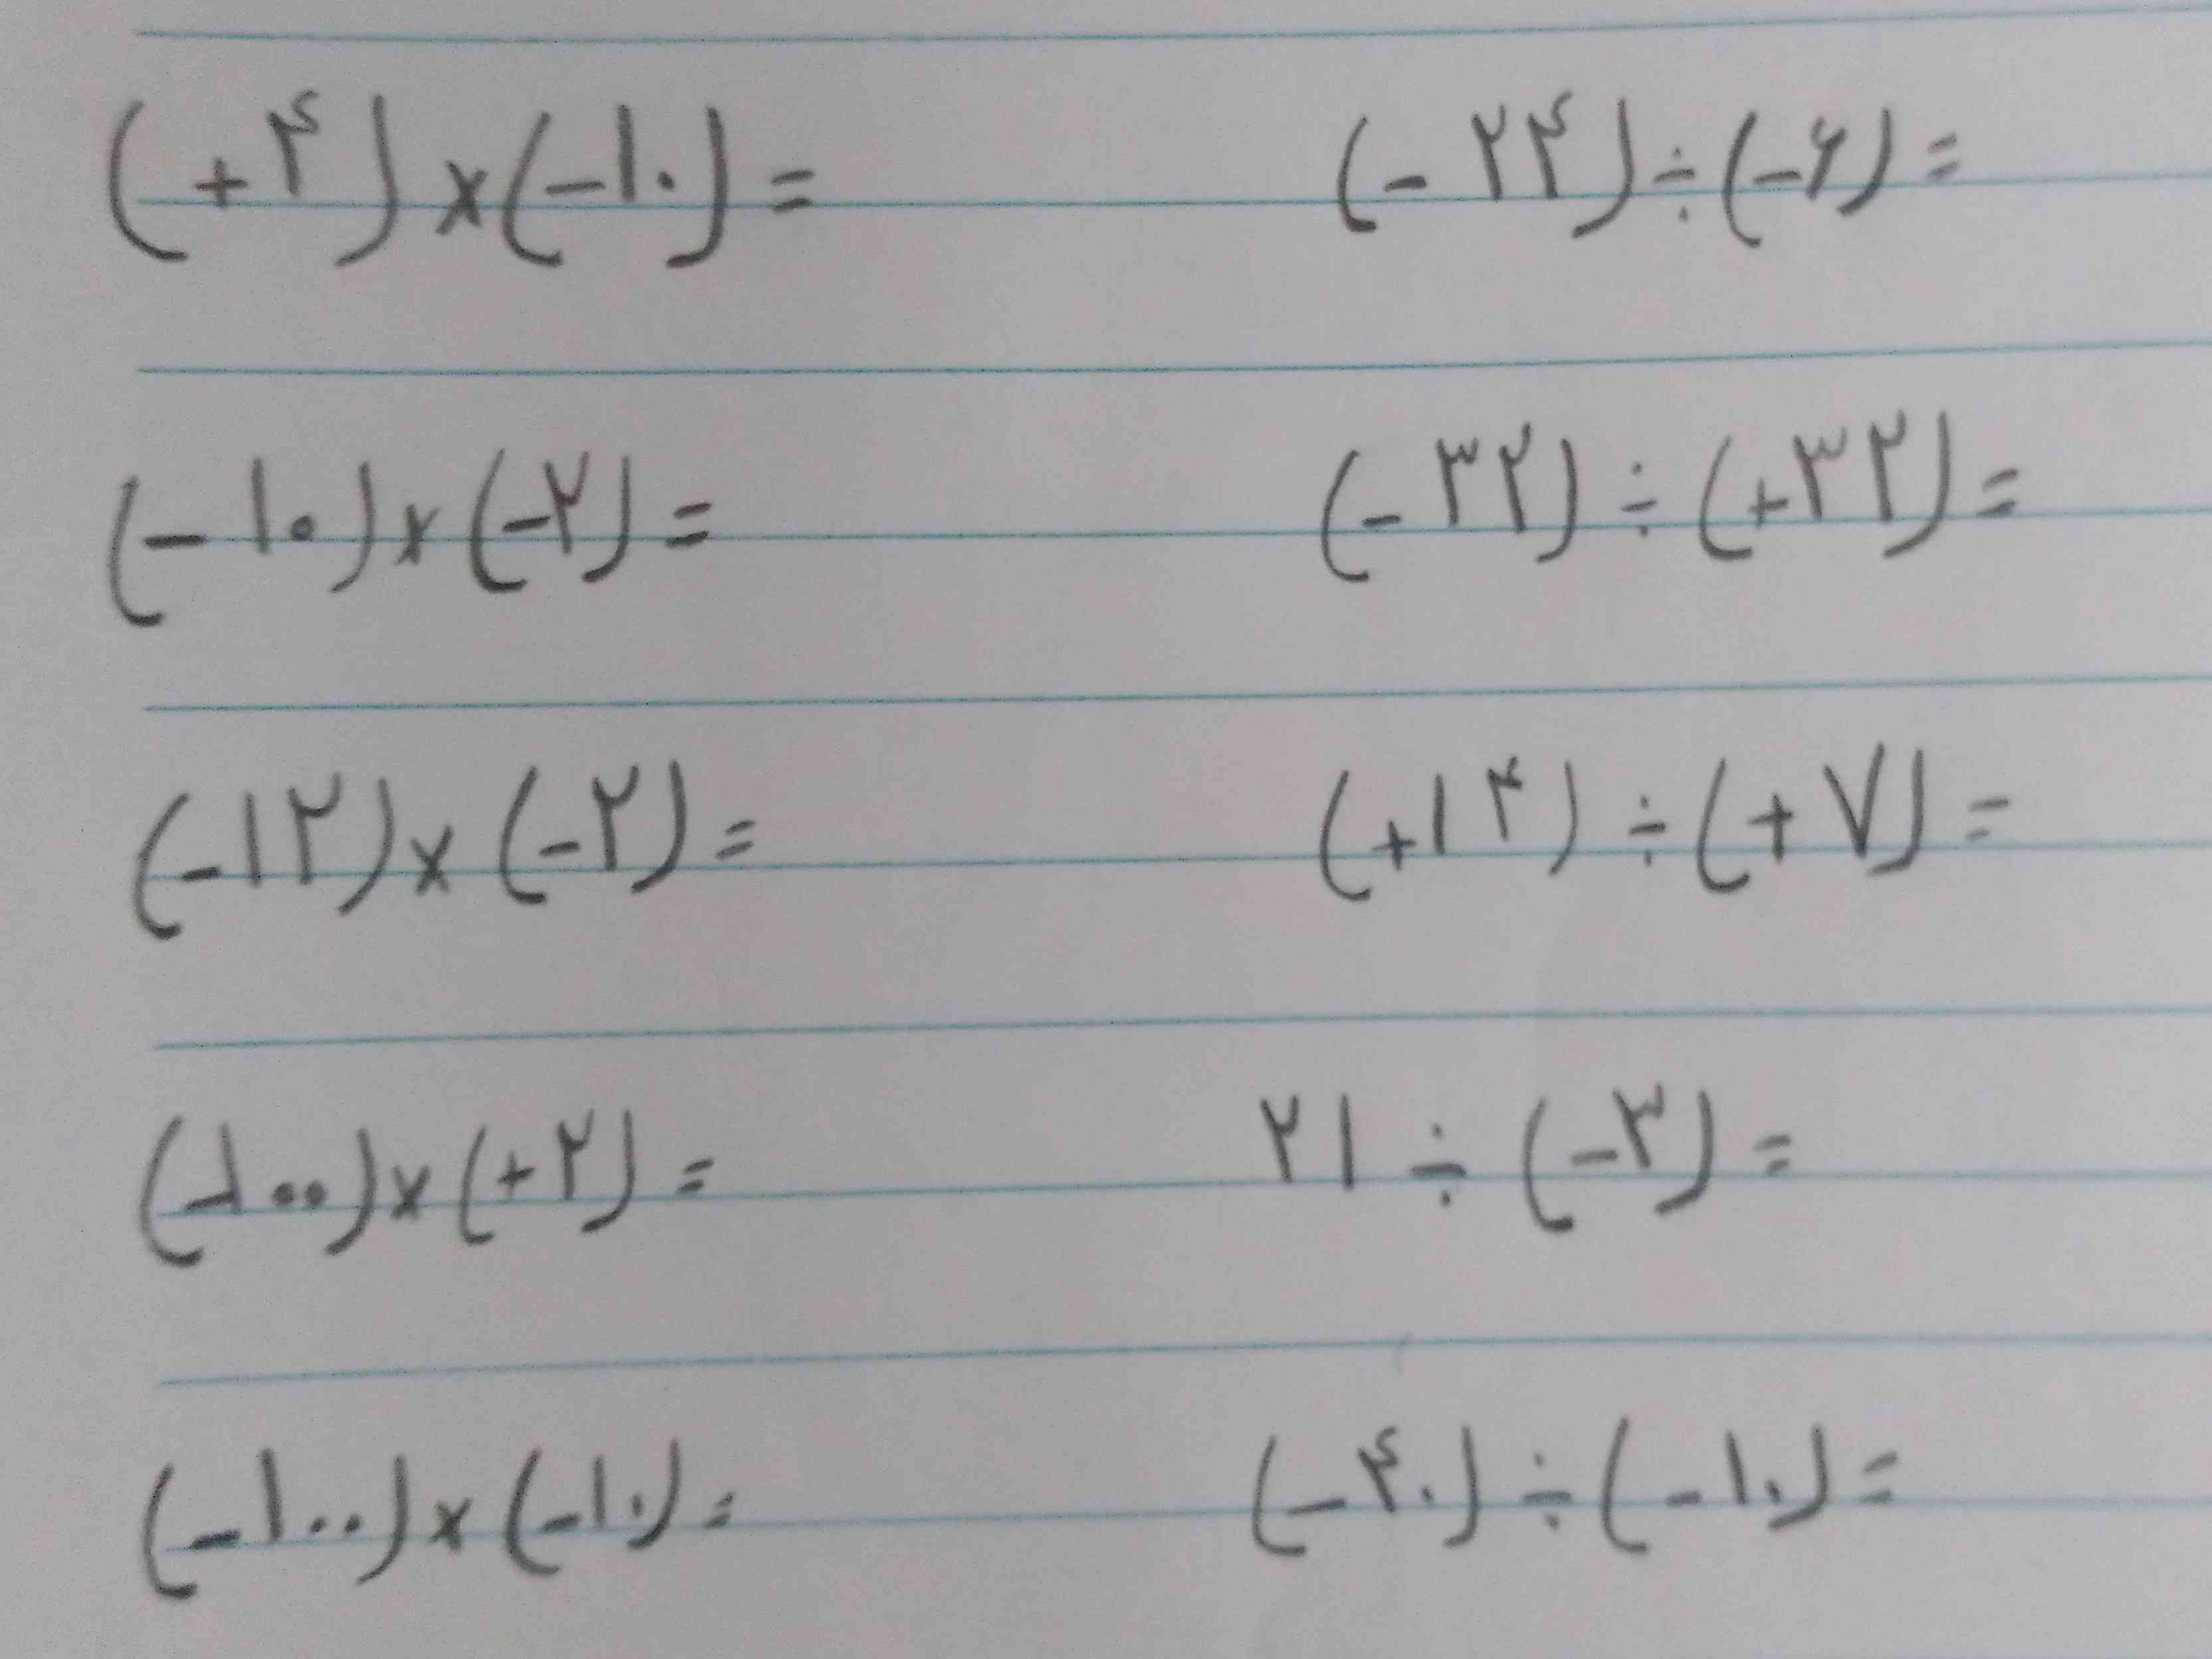 (+۴)×(-۱۰)= (-۲۴)÷(-۶)=
(-۱۰)×(-۲)= (-۳۲)÷(+۳۲)=
(-۱۲)×(-۲)= (+۱۴)÷(+۷)=
(-۱۰۰)×(+۲)= ۲۱÷(-۳)=
(-۱۰۰)×(-۱۰)= (-۴۰)÷(-۱۰)=